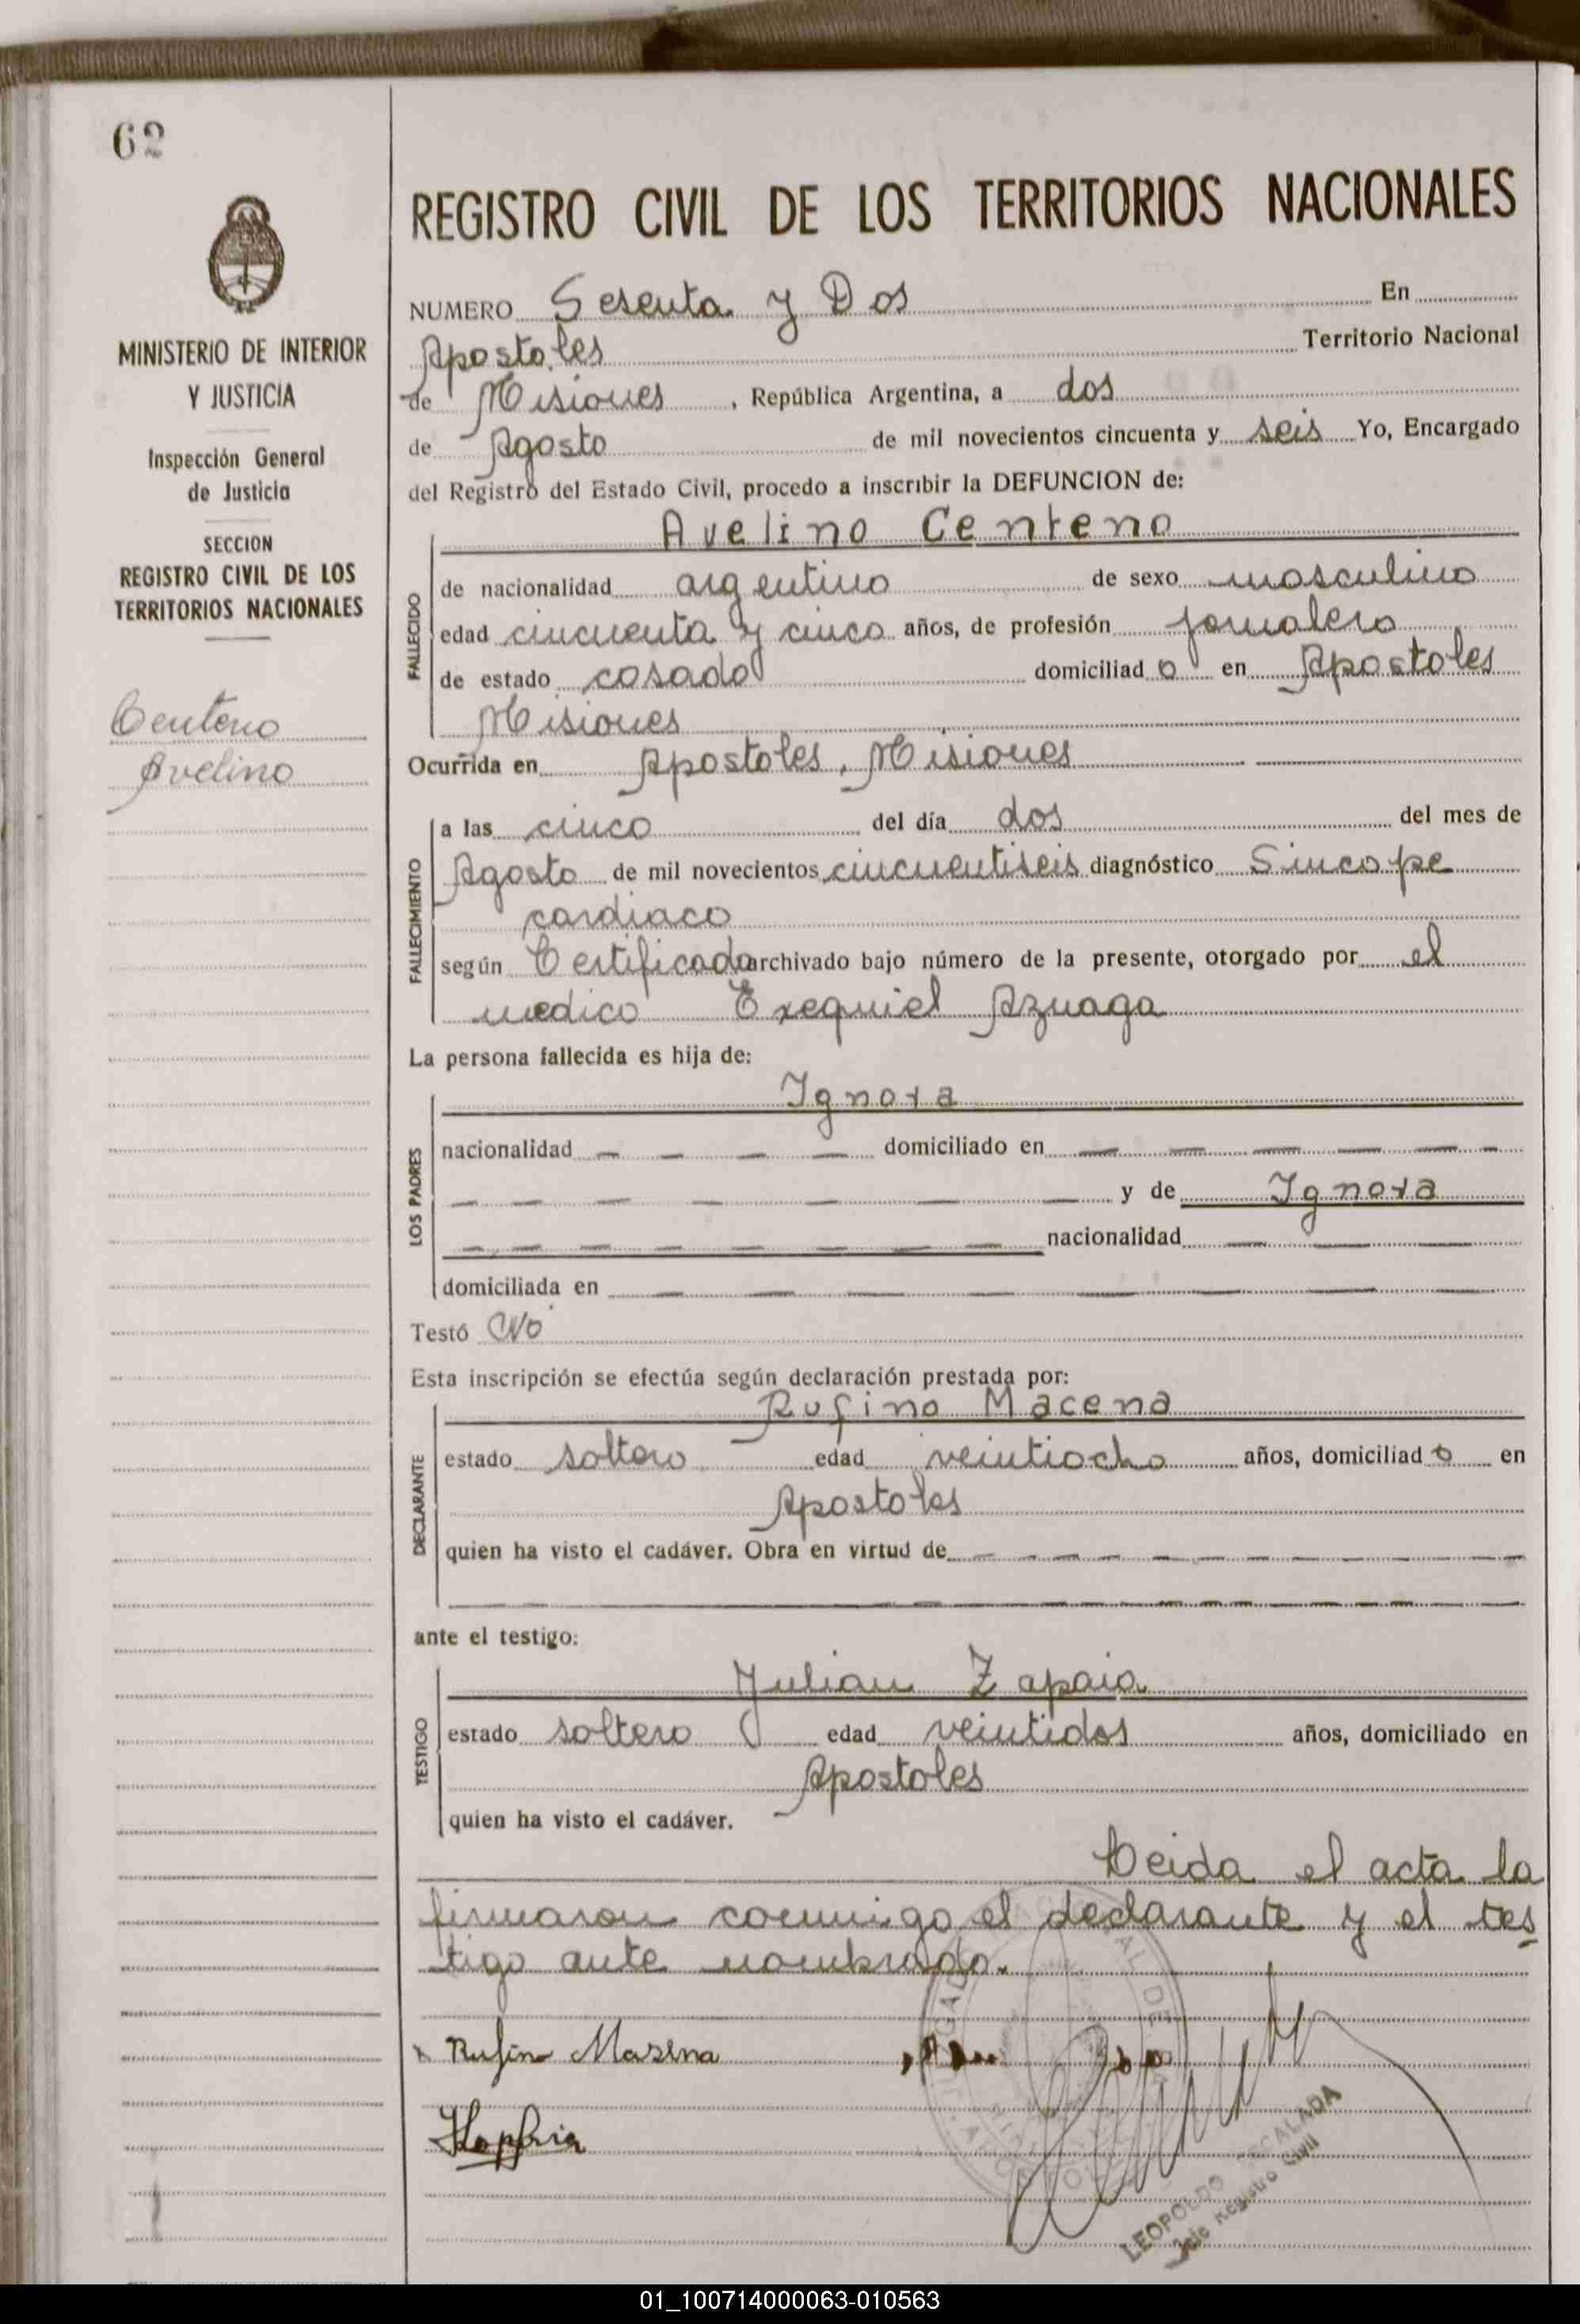 62
MINISTERIO DE INTERIOR
Y JUSTICIA
Inspección General
de Justicia
SECCION
REGISTRO CIVIL DE LOS
TERRITORIOS NACIONALES
Centeno
Avelino
REGISTRO CIVIL DE LOS TERRITORIOS NACIONALES
NUMERO Sesenta y Dos En
Apostoles Territorio Nacional
de Misiones, República Argentina, a dos
de Agosto de mil novecientos cincuenta y seis Yo, Encargado
del Registro del Estado Civil, procedo a inscribir la DEFUNCION de:
FALLECIDO
Avelino Centeno
de nacionalidad argentino de sexo masculino
edad cincuenta y cinco años, de profesión jornalero
de estado casado domiciliad o en Apostoles
Misiones
Ocurrida en Apostoles, Misiones
FALLECIMIENTO
a las cinco del día dos del mes de
Agosto de mil novecientos cincuentiseis diagnóstico Sincope
cardiaco
según Certificado archivado bajo número de la presente, otorgado por el
medico Exequiel Azuaga
La persona fallecida es hija de:
LOS PADRES
Ignora
nacionalidad — — — — domiciliado en — — — — — —
— — — — — — — — y de Ignora
— — — — — — — — nacionalidad — — — —
domiciliada en — — — — — — — — —
Testó No
Esta inscripción se efectúa según declaración prestada por:
DECLARANTE
Rufino Macena
estado soltero edad veintiocho años, domiciliad o en
Apostoles
quien ha visto el cadáver. Obra en virtud de — — — — — — — —
— — — — — — — — — — — — —
ante el testigo:
TESTIGO
Julian Zapaia
estado soltero edad veintidos años, domiciliado en
Apostoles
quien ha visto el cadáver.
Leida el acta la
firmaron conmigo el declarante y el tes
tigo ante nombrado.
Rufino Masena
LEOPOLDO ESCALADA
Jefe Registro Civil
01_100714000063-010563